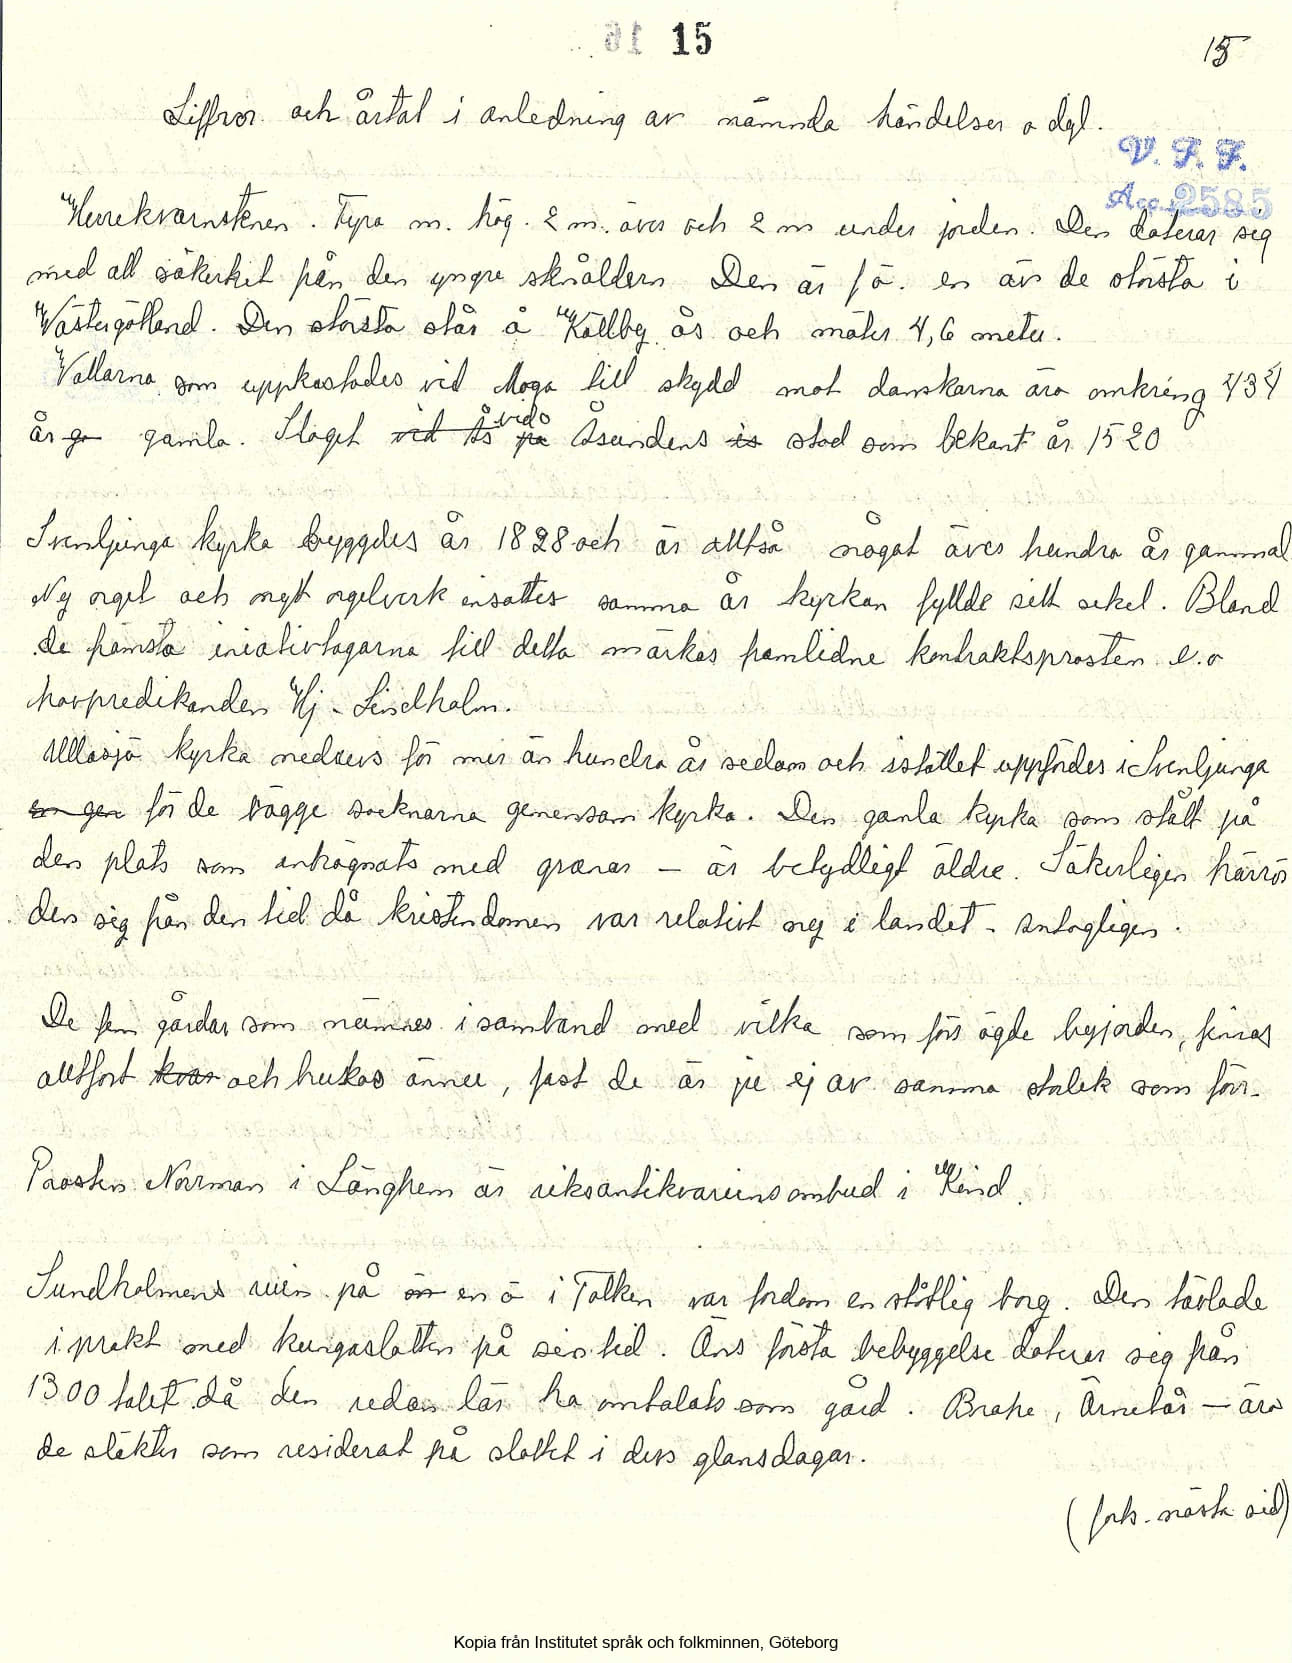 15
15
Siffror och årtal i anledning av nämnda händelser o dyl.
V. F. F.
Acc. 2585
Herrekvarnstenen. Fyra m. hög. 2 m. över och 2 m under jorden. Den daterar sig
med all säkerhet från den yngre stenåldern Den är f ö. en av de största i
Västergötland. Den största står å Källby ås och mäter 4,6 meter.
Vallarna som uppkastades vid Moga till skydd mot danskarna äro omkring 434
år ga gamla. Slaget vid Ås på vid Åsundens is stod som bekant år 1520
Svenljunga kyrka byggdes år 1828 och är alltså något över hundra år gammal
Ny orgel och nytt orgelverk insattes samma år kyrkan fyllde sitt sekel. Bland
de främsta iniativtagarna till detta märkes framlidne kontraktsprosten e.o
hovpredikanden Hj. Lindholm.
Ullasjö kyrka nedrevs för mer än hundra år sedan och istället uppfördes i Svenljunga
en gen för de bägge socknarna gemensam kyrka. Den gamla kyrka som stått på
den plats som inhägnats med granar — är betydligt äldre. Säkerligen härrör
den sig från den tid då kristendomen var relativt ny i landet - antagligen.
De fem gårdar som nämnes i samband med vilka som förr ägde byjorden, finnas
alltfort kvar och brukas ännu, fast de är ju ej av samma storlek som förr.
Prosten Norrman i Länghem är riksantikvariens ombud i Kind.
Sundholmens ruin på ön en ö i Tolken var fordom en ståtlig borg. Den tävlade
i prakt med kungaslotten på sin tid. Öns första bebyggelse daterar sig från
1300 talet då den redan lär ha omtalats som gård. Brahe, Örnefår — äro
de släkter som residerat på slottet i dess glansdagar.
(forts. nästa sid)
Kopia från Institutet språk och folkminnen, Göteborg